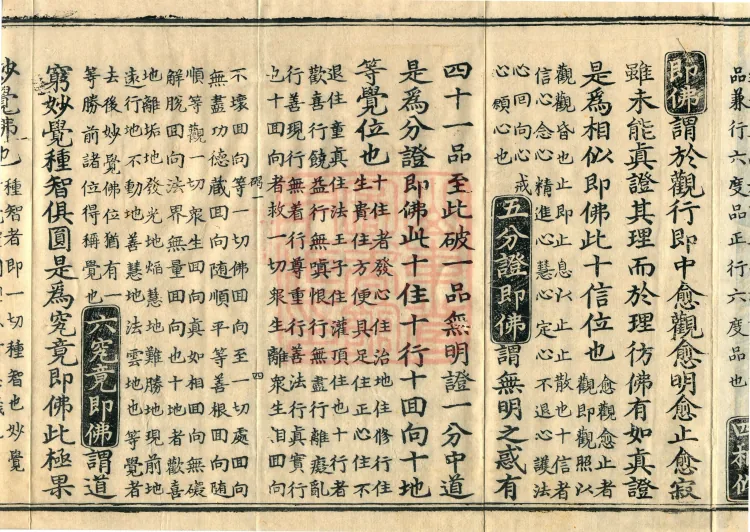 品兼行六度品正行六度品也
四相似
即佛謂於觀行即中愈觀愈明愈止愈寂
雖未能真證其理而於理彷佛有如真證
是爲相似即佛此十信位也
愈觀愈止者
觀即觀照以
觀觀昏也止即止息以止止散也十信者
信心念心精進心慧心定心不退心護法
心回向心戒
心願心也
五分證即佛謂無明之惑有
四十一品至此破一品無明證一分中道
是爲分證即佛此十住十行十回向十地
等覺位也
十住者發心住治地住修行住
生貴住方便具足住正心住不
退住童真住法王子住灌頂住也十行者
歡喜行饒益行無嗔恨行無盡行離癡亂
行善現行無着行尊重行善法行真實行
也十回向者救一切衆生離衆生相回向
四
不壞回向等一切佛回向至一切處回向
無盡功德藏回向隨順平等善根回向隨
順等觀一切衆生回向真如相回向無礙
解脫回向法界無量回向也十地者歡喜
地離垢地發光地焰慧地難勝地現前地
遠行地不動地善慧地法雲地也等覺者
去後妙覺佛位猶有一
等勝前諸位得稱覺也
六究竟即佛謂道
窮妙覺種智俱圓是爲究竟即佛此極果
妙覺佛也
種智者即一切種智也妙覺